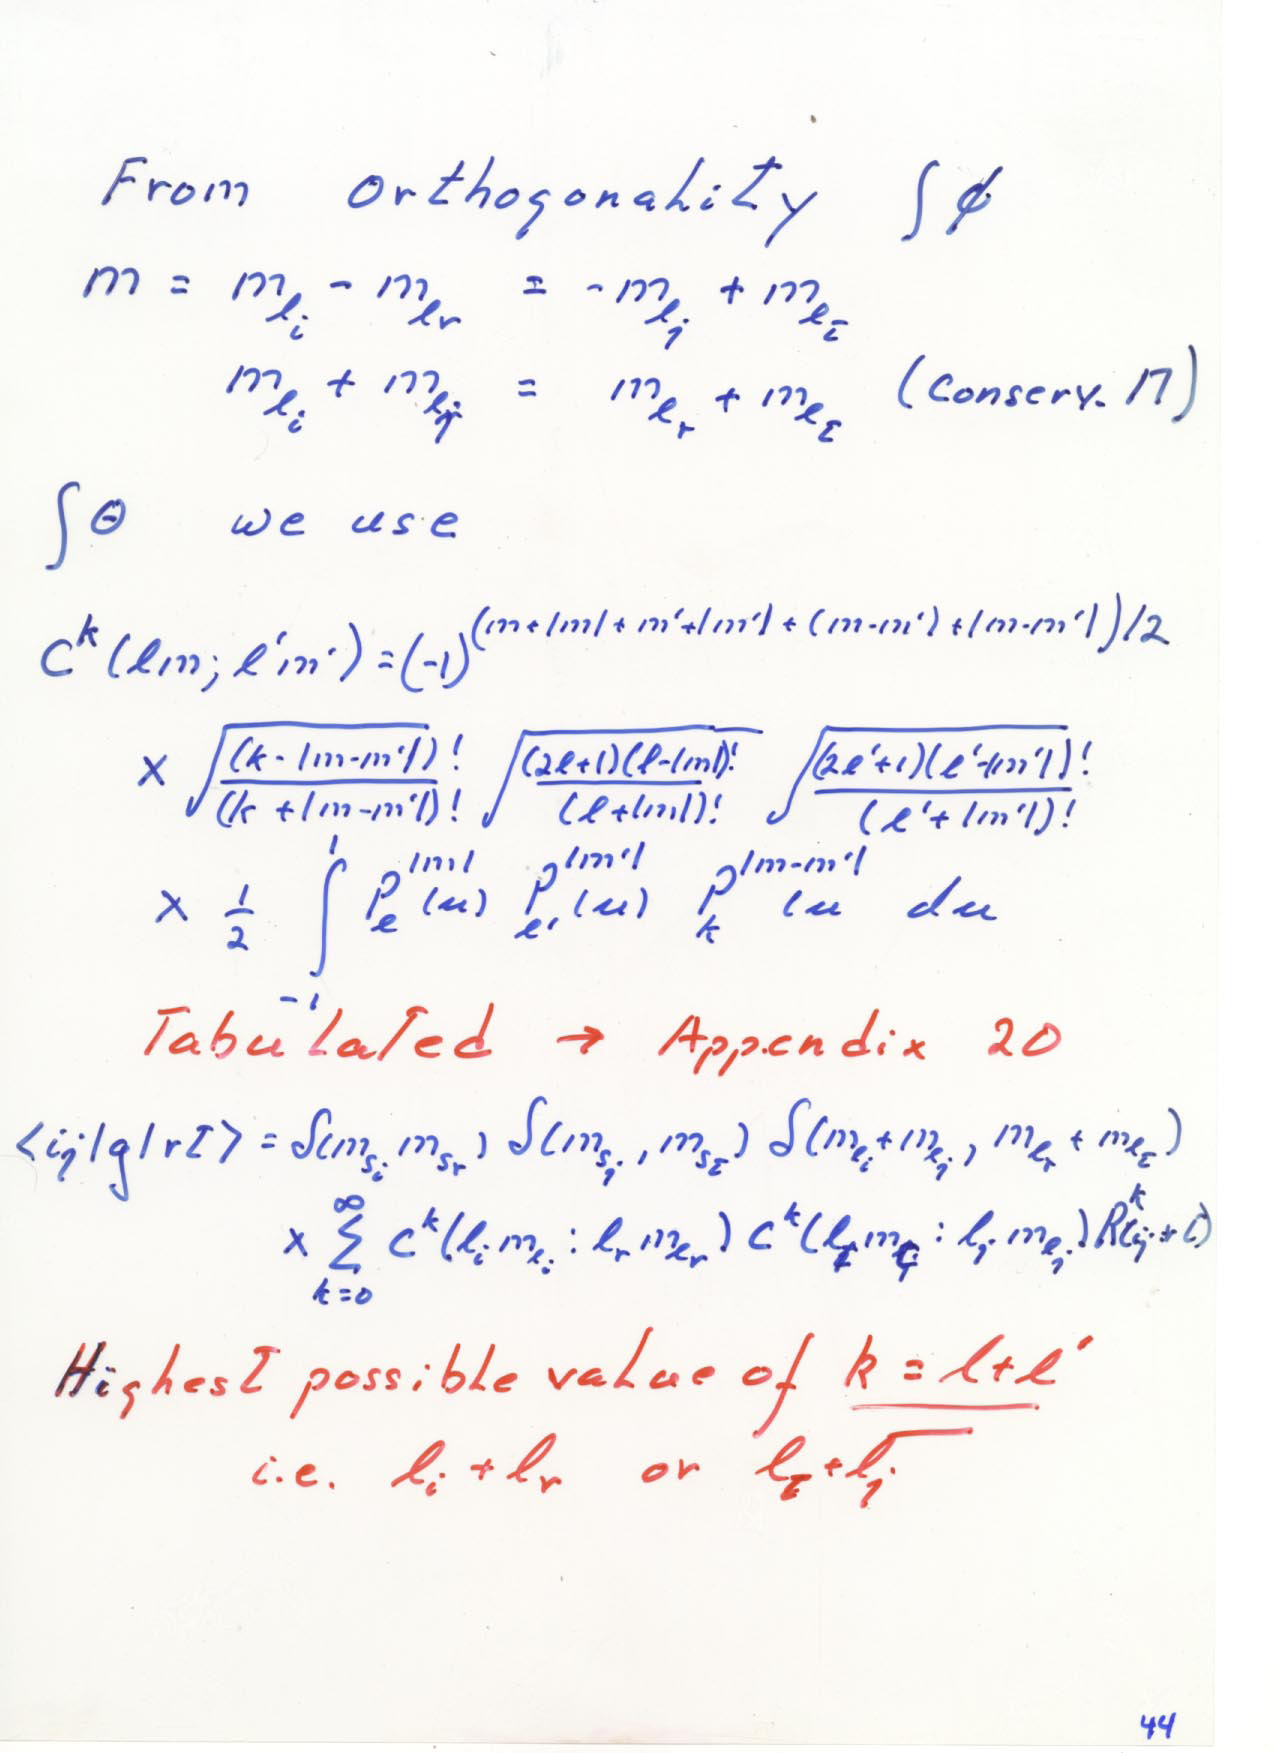 From orthogonality ∫φ
m = m_{l_i} - m_{l_r} = -m_{l_j} + m_{l_t}
m_{l_i} + m_{l_j} = m_{l_r} + m_{l_t} (Conserv. M)
∫Θ we use
C^k(lm; l'm') = (-1)^{(m+|m|+m'+|m'|+(m-m')+|m-m'|)/2}
× √((k-|m-m'|)!/(k+|m-m'|)!) √((2l+1)(l-|m|)!/(l+|m|)!) √((2l'+1)(l'-|m'|)!/(l'+|m'|)!)
× 1/2 ∫_{-1}^{1} P_l^{|m|}(u) P_{l'}^{|m'|}(u) P_k^{|m-m'|}(u du
Tabulated → Appendix 20
<ij|g|rt> = δ(m_{s_i} m_{s_r}) δ(m_{s_j}, m_{s_t}) δ(m_{l_i}+m_{l_j}, m_{l_r}+m_{l_t})
× Σ_{k=0}^{∞} C^k(l_i m_{l_i} : l_r m_{l_r}) C^k(l_t m_{l_t} : l_j m_{l_j}) R^k
Highest possible value of k = l+l'
i.e. l_i + l_r or l_t + l_j
44